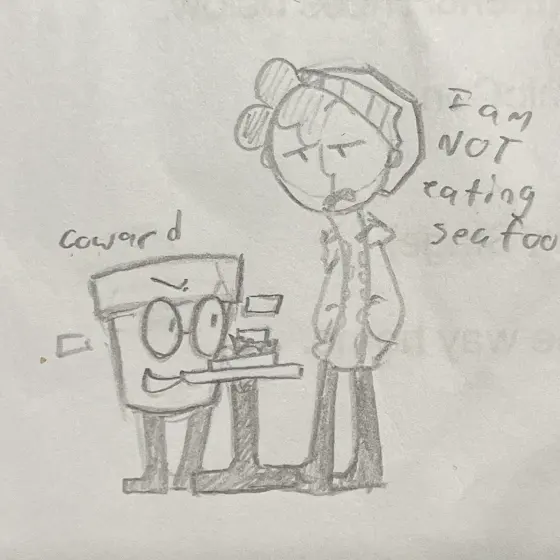 I am
NOT
eating
seafoo
coward